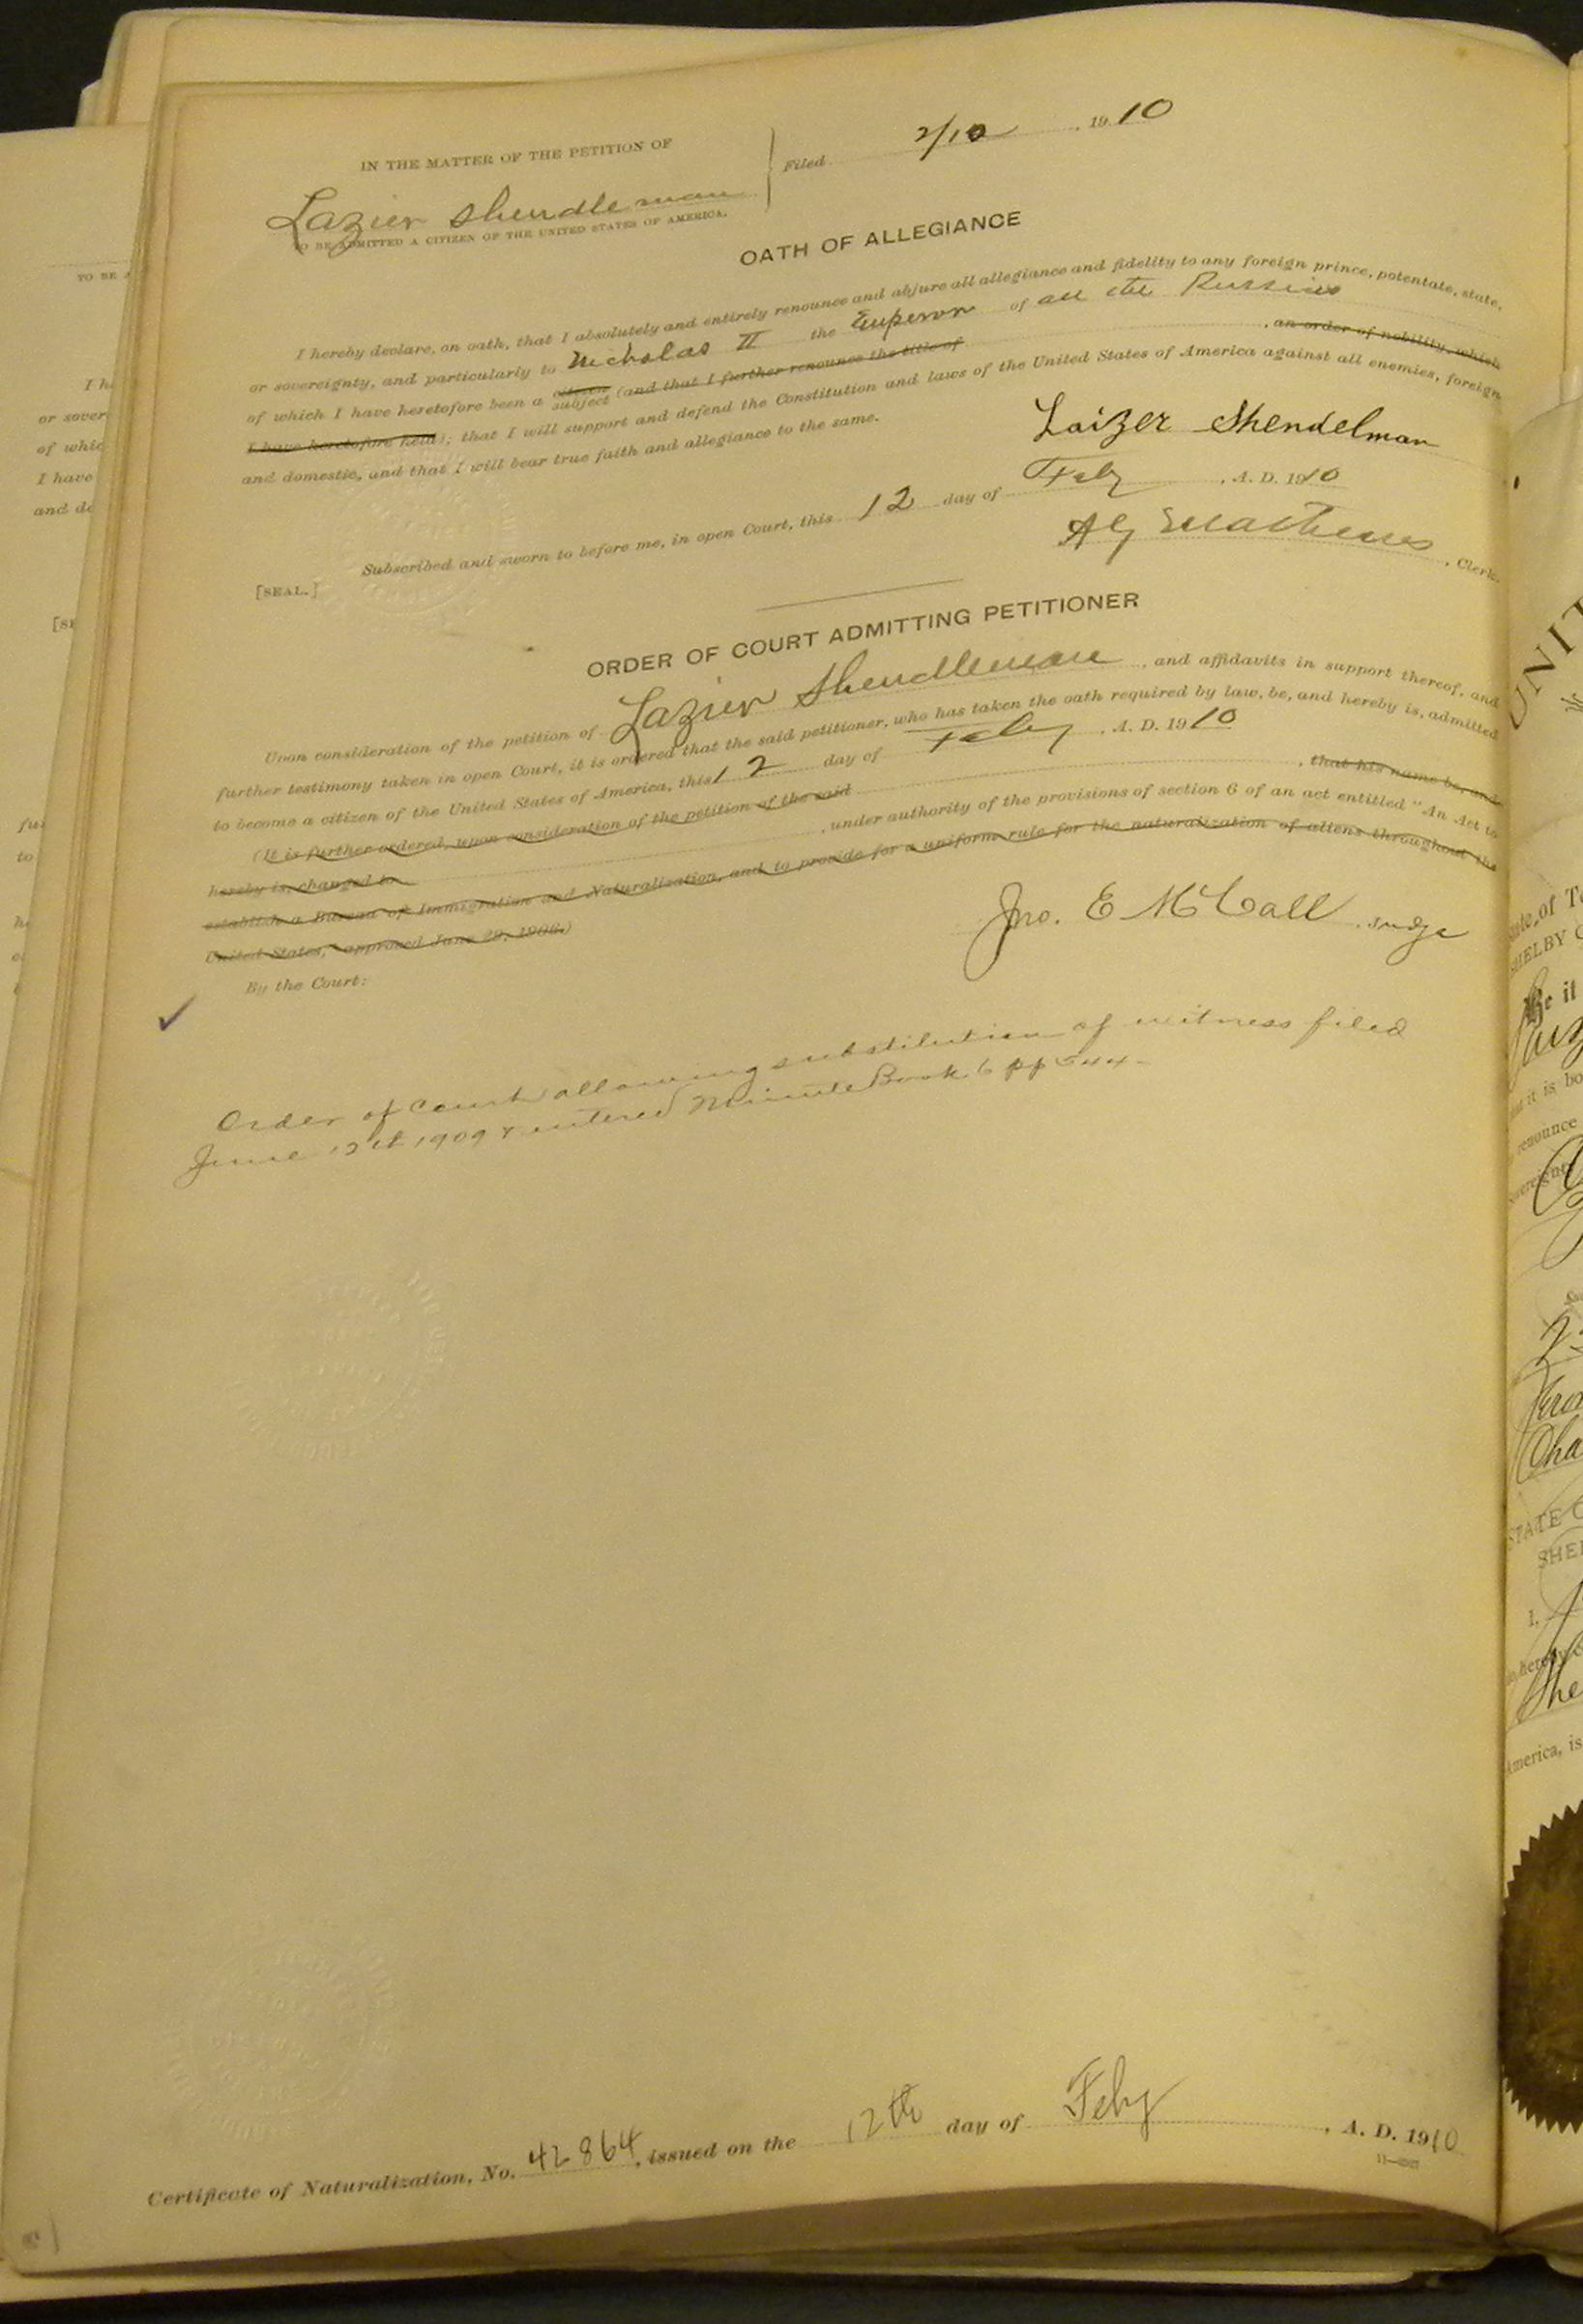 IN THE MATTER OF THE PETITION OF
Lazier Shendleman
TO BE ADMITTED A CITIZEN OF THE UNITED STATES OF AMERICA.
Filed 2/10, 1910
OATH OF ALLEGIANCE
I hereby declare, on oath, that I absolutely and entirely renounce and abjure all allegiance and fidelity to any foreign prince, potentate, state,
or sovereignty, and particularly to Nicholas II the Emperor of all the Russias
of which I have heretofore been a citizen subject (and that I further renounce the title of , an order of nobility, which
I have heretofore held); that I will support and defend the Constitution and laws of the United States of America against all enemies, foreign
and domestic, and that I will bear true faith and allegiance to the same.
Laizer Shendelman
Subscribed and sworn to before me, in open Court, this 12 day of Feby, A. D. 1910
[SEAL.]
A G Matthews, Clerk.
ORDER OF COURT ADMITTING PETITIONER
Upon consideration of the petition of Lazier Shendleman, and affidavits in support thereof, and
further testimony taken in open Court, it is ordered that the said petitioner, who has taken the oath required by law, be, and hereby is, admitted
to become a citizen of the United States of America, this 12 day of Feby, A. D. 1910
(It is further ordered, upon consideration of the petition of the said , that his name be, and
hereby is, changed to , under authority of the provisions of section 6 of an act entitled "An Act to
establish a Bureau of Immigration and Naturalization, and to provide for a uniform rule for the naturalization of aliens throughout the
United States," approved June 29, 1906.)
By the Court:
Jno. E McCall, Judge
✓
Order of Court allowing substitution of witness filed
June 12th 1909 & entered Minute Book 6 pp 544-
Certificate of Naturalization, No. 42864, issued on the 12th day of Feby, A. D. 1910
TO BE A
I h
or sover
of whic
I have
and do
[SE
fu
to
UNIT
State of Te
SHELBY C
Be it
it is bo
renounce
Sovereign
STATE O
SHEL
I,
hereby
She
America, is